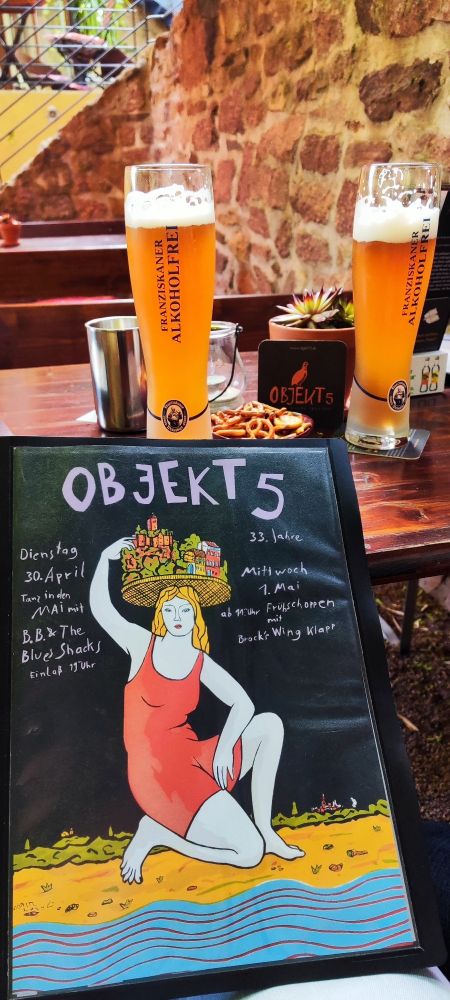 FRANZISKANER
ALKOHOLFREI
FRANZISKANER
ALKOHOLFREI
OBJEKT 5
OBJEKT 5
33. Jahre
Dienstag
30. April
Tanz in den
MAI mit
B.B. & The
Blues Shacks
Einlaß 19 Uhr
Mittwoch
1. Mai
ab 11 Uhr Frühschoppen
mit
Brock's Wing Klapp